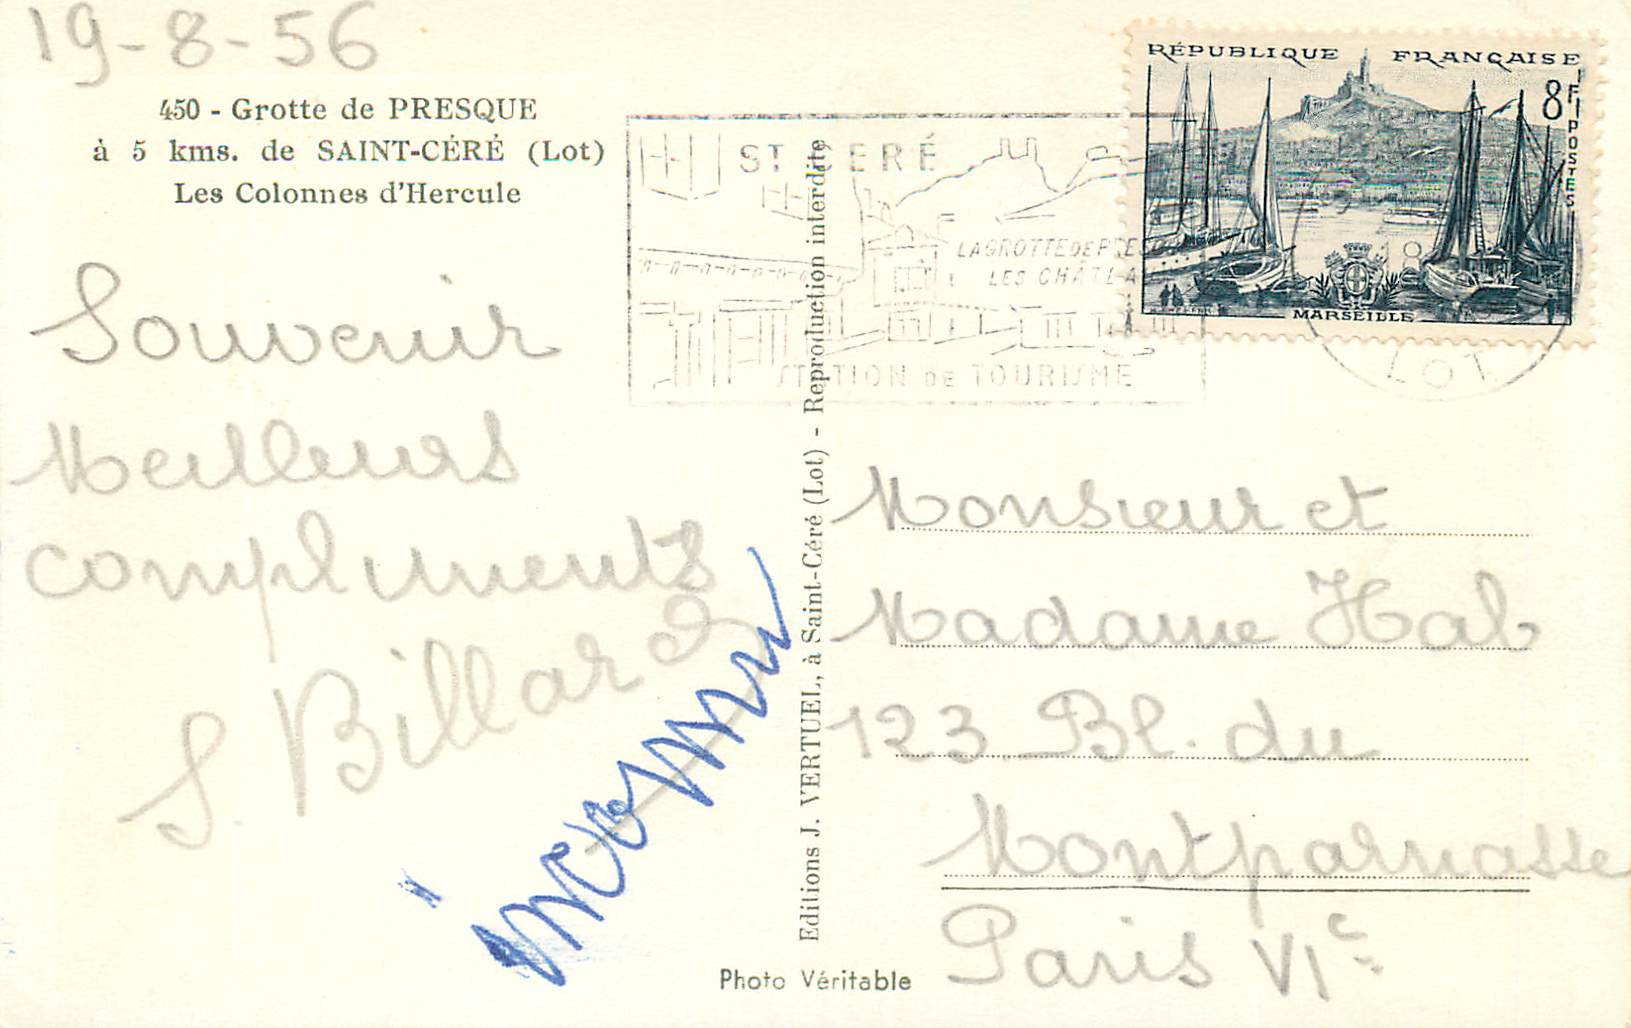 19-8-56
450 - Grotte de PRESQUE
à 5 kms. de SAINT-CÉRÉ (Lot)
Les Colonnes d'Hercule
Souvenir
Meilleurs
compliments
S. Billard
ST CERÉ
LA GROTTE DE PRESQ
LES CHÂT
STATION DE TOURISME
RÉPUBLIQUE FRANÇAISE
8F
POSTES
MARSEILLE
LOT
Editions J. VERTUEL, à Saint-Céré (Lot) - Reproduction interdite
Monsieur et
Madame Hab
123 Bl. du
Montparnasse
Paris VIe
Photo Véritable